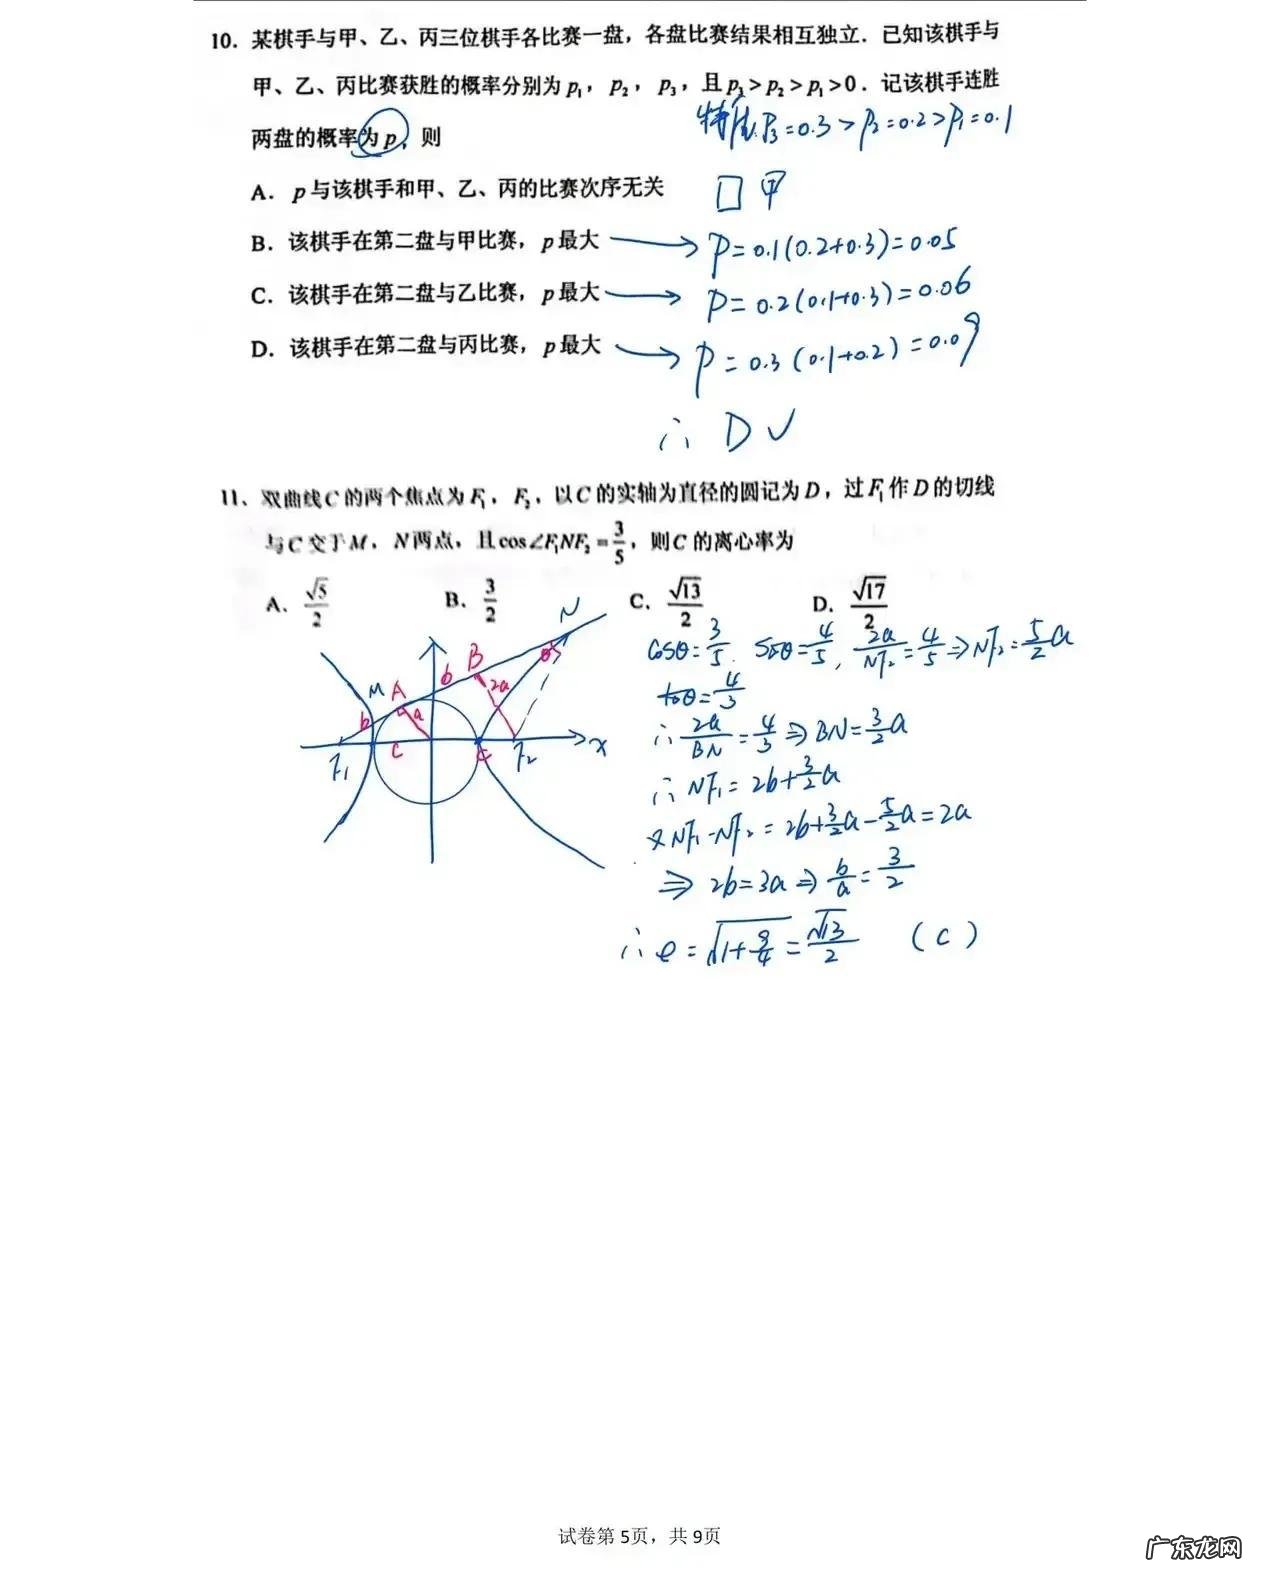 10. 某棋手与甲、乙、丙三位棋手各比赛一盘，各盘比赛结果相互独立．已知该棋手与
甲、乙、丙比赛获胜的概率分别为 p₁，p₂，p₃，且 p₃>p₂>p₁>0．记该棋手连胜
两盘的概率为 p，则
特值. P₃=0.3>P₂=0.2>P₁=0.1
A. p 与该棋手和甲、乙、丙的比赛次序无关
□ 甲
B. 该棋手在第二盘与甲比赛，p 最大 → P=0.1(0.2+0.3)=0.05
C. 该棋手在第二盘与乙比赛，p 最大 → P=0.2(0.1+0.3)=0.06
D. 该棋手在第二盘与丙比赛，p 最大 → P=0.3(0.1+0.2)=0.09
∴ D √
11、双曲线 C 的两个焦点为 F₁，F₂，以 C 的实轴为直径的圆记为 D，过 F₁ 作 D 的切线
与 C 交于 M，N 两点，且 cos∠F₁NF₂=3/5，则 C 的离心率为
A. √5/2 B. 3/2 C. √13/2 D. √17/2
M A b B N θ
b a 2a
F₁ c F₂ x
cosθ=3/5. sinθ=4/5, 2a/NF₂=4/5⇒NF₂=5/2a
tanθ=4/3
∴ 2a/BN=4/3⇒BN=3/2a
∴ NF₁=2b+3/2a
又NF₁-NF₂=2b+3/2a-5/2a=2a
⇒ 2b=3a⇒b/a=3/2
∴ e=√(1+9/4)=√13/2 (C)
试卷第 5页，共 9页
广东龙网